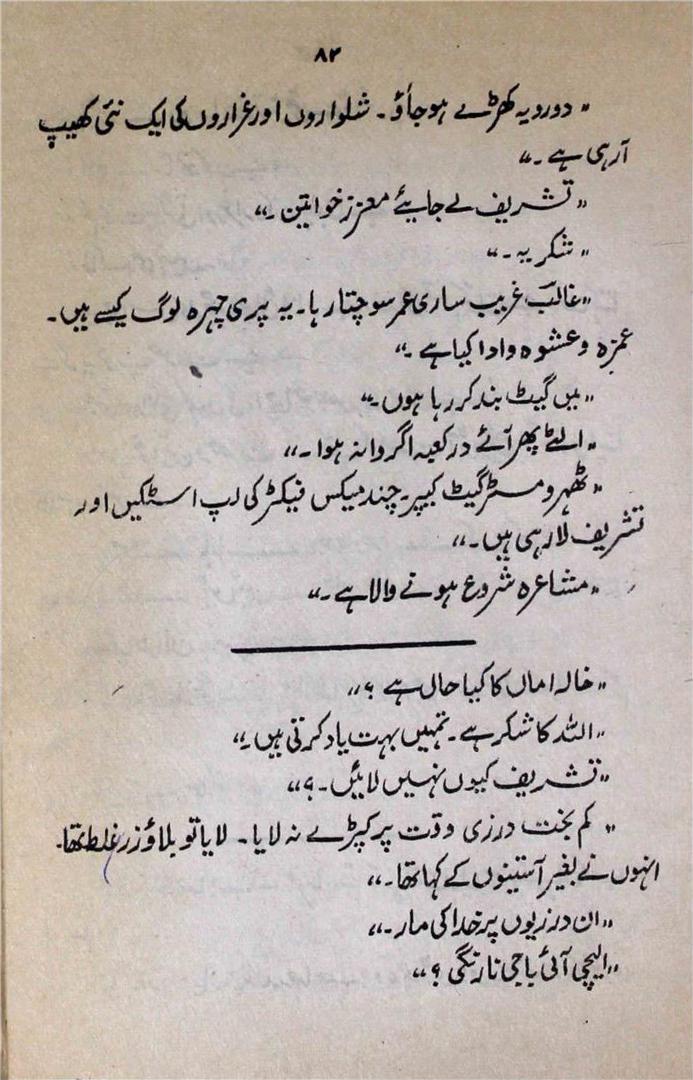 ۸۲
"دورویہ کھڑے ہو جاؤ۔ شلواروں اور غراروں کی ایک نئی کھیپ
آرہی ہے۔"
"تشریف لے جایئے معزز خواتین۔"
"شکریہ۔"
"غالبؔ غریب ساری عمر سوچتا رہا۔ یہ پری چہرہ لوگ کیسے ہیں۔
غمزہ و عشوہ و ادا کیا ہے۔"
"میں گیٹ بند کر رہا ہوں۔"
"الٹے پھر آئے در کعبہ اگر وا نہ ہوا۔"
"ٹھہرو مسٹر گیٹ کیپر۔ چند میکس فیکٹر کی لپ اسٹکیں اور
تشریف لا رہی ہیں۔"
"مشاعرہ شروع ہونے والا ہے۔"
"خالہ اماں کا کیا حال ہے؟"
"اللہ کا شکر ہے۔ تمہیں بہت یاد کرتی ہیں۔"
"تشریف کیوں نہیں لائیں۔؟"
"کم بخت درزی وقت پر کپڑے نہ لایا۔ لایا تو بلاؤزر غلط تھا۔
انہوں نے بغیر آستینوں کے کہا تھا۔"
"ان درزیوں پر خدا کی مار۔"
"ایلچی آئی باجی نارنگی؟"